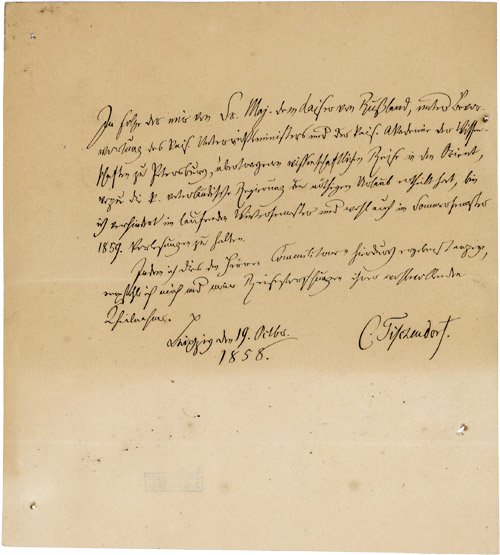 In Folge der mir von Sr. Maj. dem Kaiser von Rußland, unter Bevor-
wortung des Kais. Unterrichtsministers und der Kais. Akademie der Wissen-
schaften zu Petersburg, übertragenen wissenschaftlichen Reise in den Orient,
wozu die k. vaterländische Regierung den nöthigen Urlaub ertheilt hat, bin
ich verhindert im laufenden Wintersemester und wohl auch im Sommersemester
1859. Vorlesungen zu halten.
Indem ich dies den Herren Commilitonen hierdurch ergebenst anzeige,
empfehle ich mich und meine Reiseforschungen ihrer wohlwollenden
Theilnahme.
Leipzig den 19. Octbr.
1858.
C. Tischendorf.